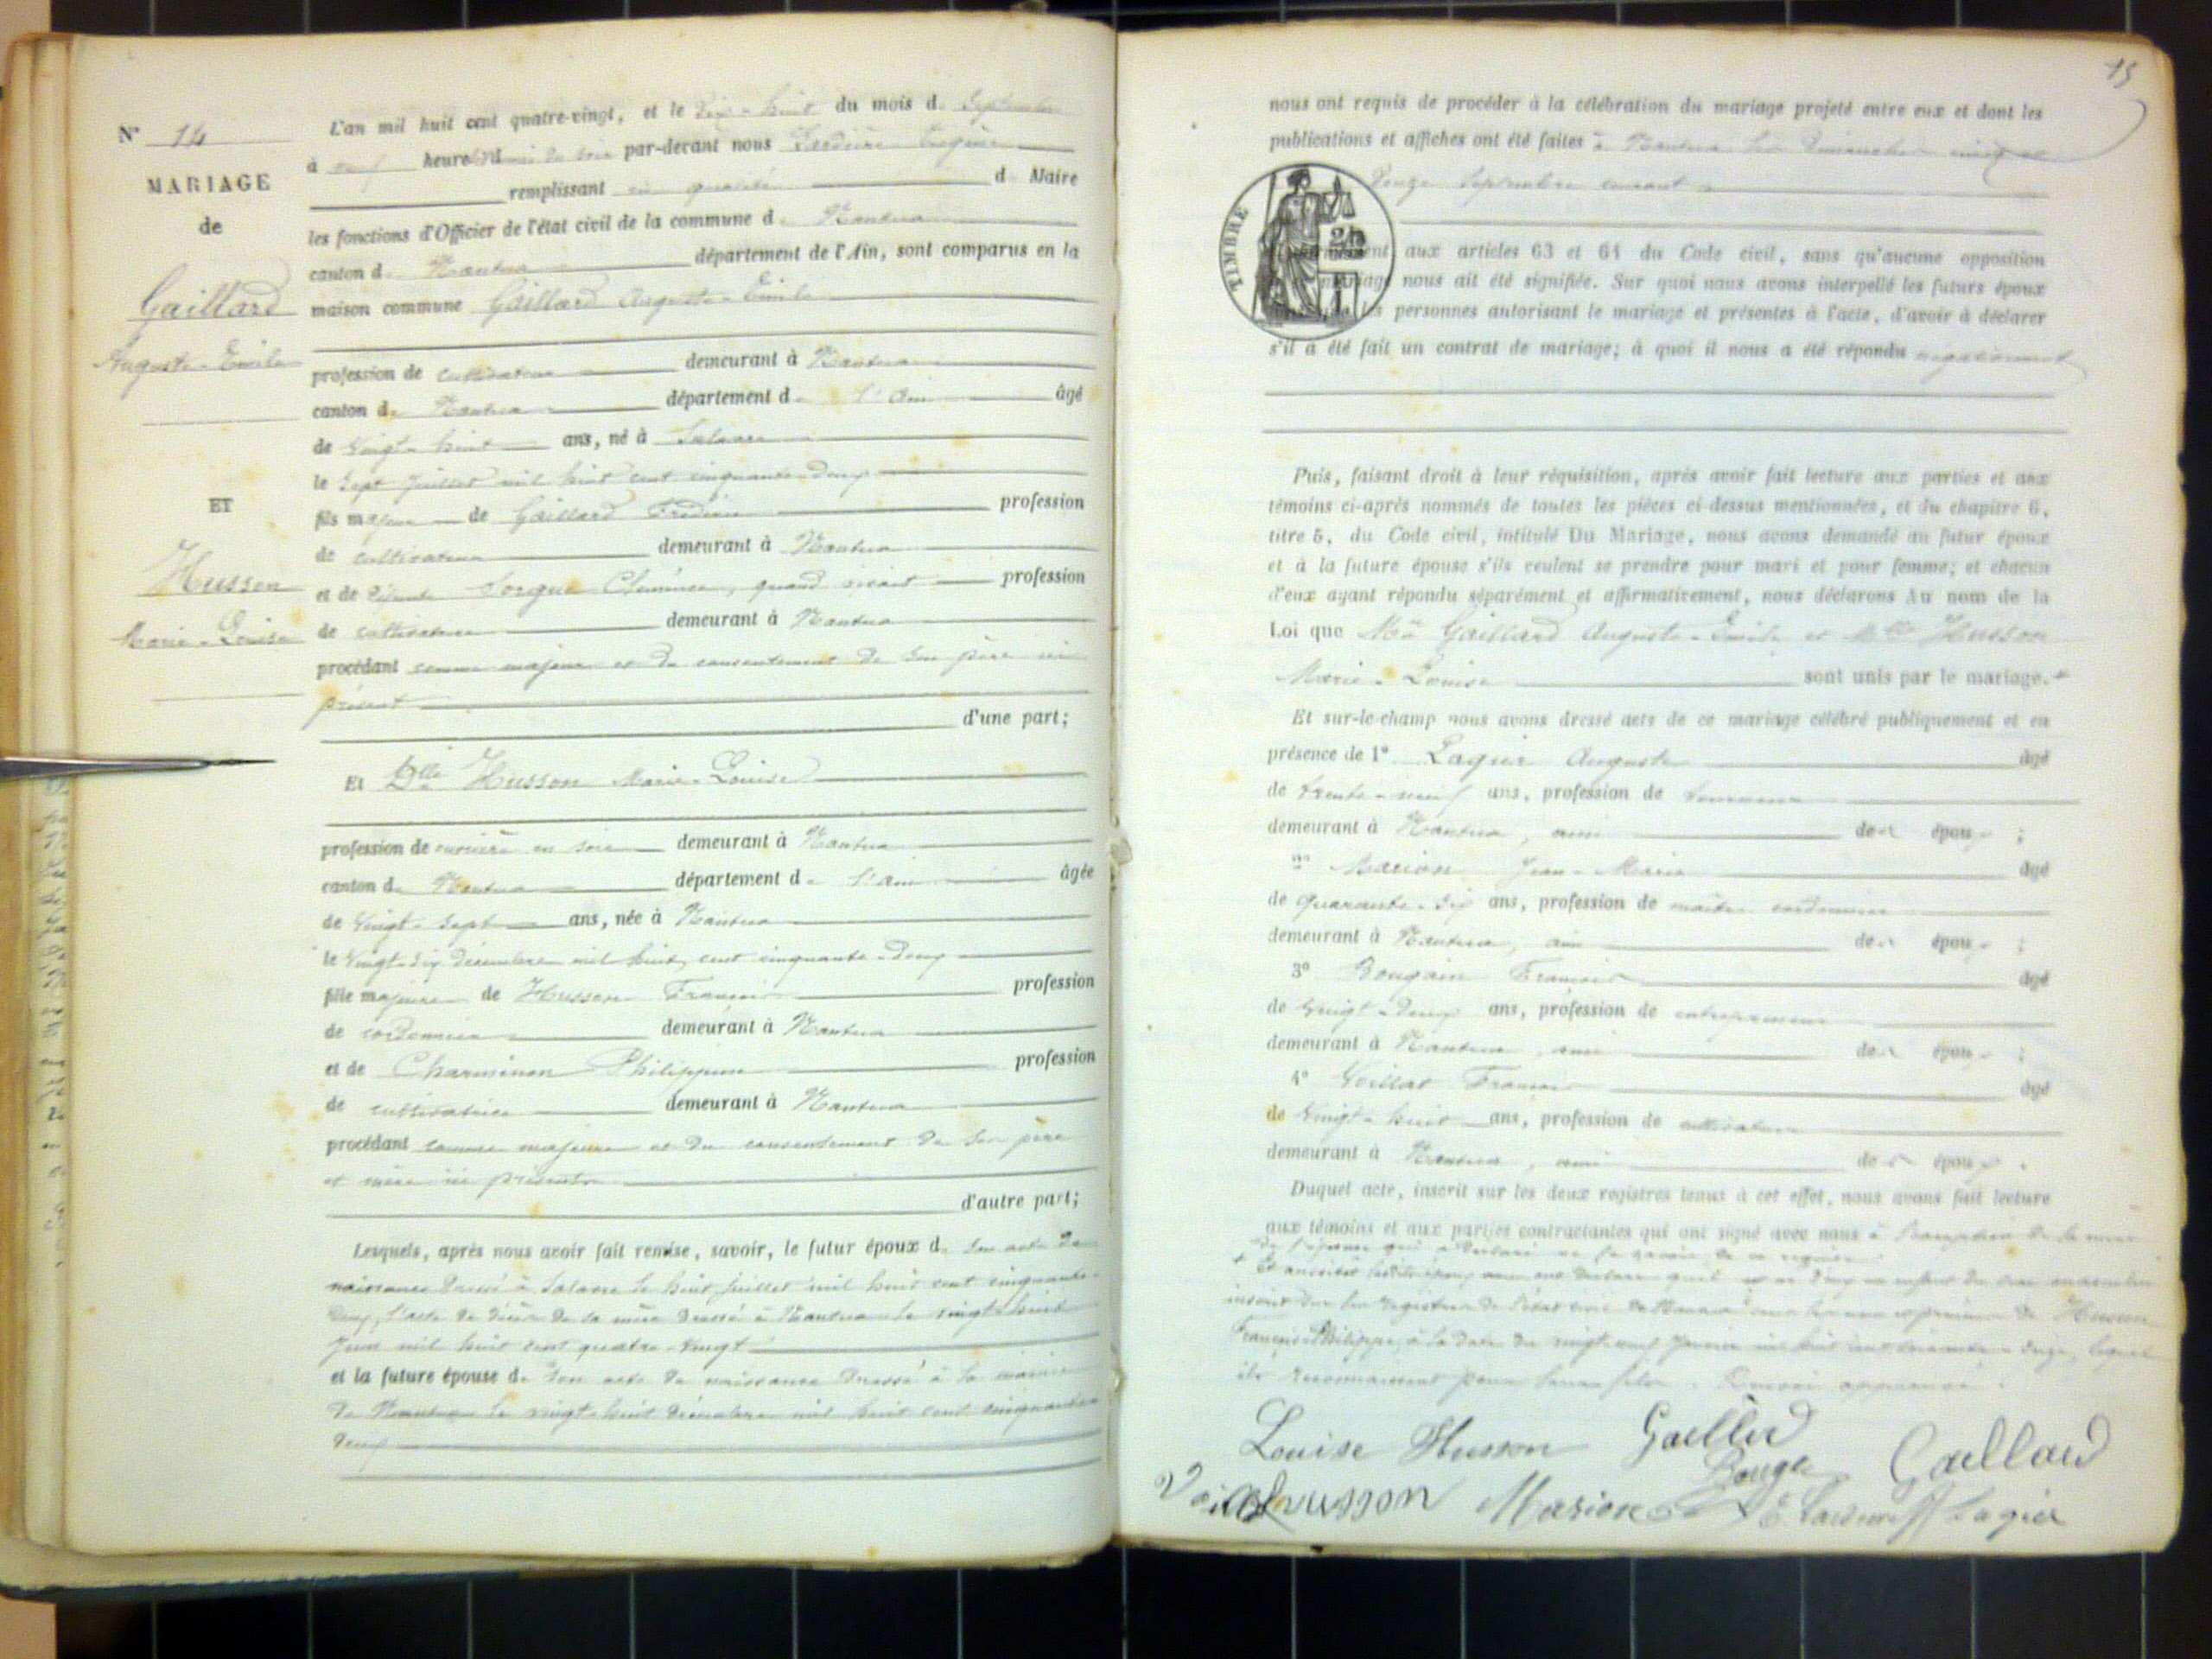 N° 14
MARIAGE
de
Gaillard
Auguste-Emile
ET
Husson
Marie-Louise
L'an mil huit cent quatre-vingt, et le dix-huit du mois d septembre
à neuf heure du soir par-devant nous Eugène
remplissant en qualité d Maire
les fonctions d'Officier de l'état civil de la commune d Nantua
canton d Nantua département de l'Ain, sont comparus en la
maison commune Gaillard Auguste-Emile
profession de cultivateur demeurant à Nantua
canton de Nantua département d l'Ain âgé
de vingt-huit ans, né à
le sept juillet mil huit cent cinquante-deux
fils majeur de Gaillard profession
de cultivateur demeurant à Nantua
et de défunte Clémence, quand vivait profession
de cultivatrice demeurant à Nantua
procédant comme majeur et du consentement de son père ici
présent
d'une part;
Et Dlle Husson Marie-Louise
profession de ouvrière en soie demeurant à Nantua
canton d Nantua département d l'Ain âgée
de vingt-sept ans, née à Nantua
le vingt-six décembre mil huit cent cinquante-deux
fille majeure de Husson François profession
de cordonnier demeurant à Nantua
et de Charminon Philippine profession
de cultivatrice demeurant à Nantua
procédant comme majeure et du consentement de ses père
et mère ici présents
d'autre part;
Lesquels, après nous avoir fait remise, savoir, le futur époux d son acte de
naissance dressé à le huit juillet mil huit cent cinquante-
deux, l'acte de décès de sa mère dressé à Nantua le vingt-huit
juin mil huit cent quatre-vingt
et la future épouse d son acte de naissance dressé à la mairie
de Nantua le vingt-huit décembre mil huit cent cinquante
deux
15
nous ont requis de procéder à la célébration du mariage projeté entre eux et dont les
publications et affiches ont été faites à Nantua les dimanches cinq et
douze septembre courant
TIMBRE
aux articles 63 et 64 du Code civil, sans qu'aucune opposition
mariage nous ait été signifiée. Sur quoi nous avons interpellé les futurs époux
les personnes autorisant le mariage et présentes à l'acte, d'avoir à déclarer
s'il a été fait un contrat de mariage; à quoi il nous a été répondu négativement
Puis, faisant droit à leur réquisition, après avoir fait lecture aux parties et aux
témoins ci-après nommés de toutes les pièces ci-dessus mentionnées, et du chapitre 6,
titre 5, du Code civil, intitulé Du Mariage, nous avons demandé au futur époux
et à la future épouse s'ils veulent se prendre pour mari et pour femme; et chacun
d'eux ayant répondu séparément et affirmativement, nous déclarons Au nom de la
Loi que Mr Gaillard Auguste-Emile et Mlle Husson
Marie-Louise sont unis par le mariage. +
Et sur-le-champ nous avons dressé acte de ce mariage célébré publiquement et en
présence de 1° Lagier Auguste âgé
de trente-neuf ans, profession de
demeurant à Nantua, ami des époux ;
2° Marion Jean-Marie âgé
de quarante-six ans, profession de maître cordonnier
demeurant à Nantua, ami des époux ;
3° François âgé
de vingt-deux ans, profession de entrepreneur
demeurant à Nantua, ami des époux ;
4° François âgé
de vingt-huit ans, profession de cultivateur
demeurant à Nantua, ami des époux .
Duquel acte, inscrit sur les deux registres tenus à cet effet, nous avons fait lecture
aux témoins et aux parties contractantes qui ont signé avec nous à l'exception de la mère
de l'épouse qui a déclaré ne le savoir de ce requise
inscrit sur les registres de l'état civil de Nantua sous les nom et prénoms de Husson
François Philippe, à la date du vingt-neuf janvier mil huit cent lequel
ils reconnaissent pour leur fils. Renvoi approuvé.
Louise Husson
Gaillard
Gaillard
husson
Marion
Lagier